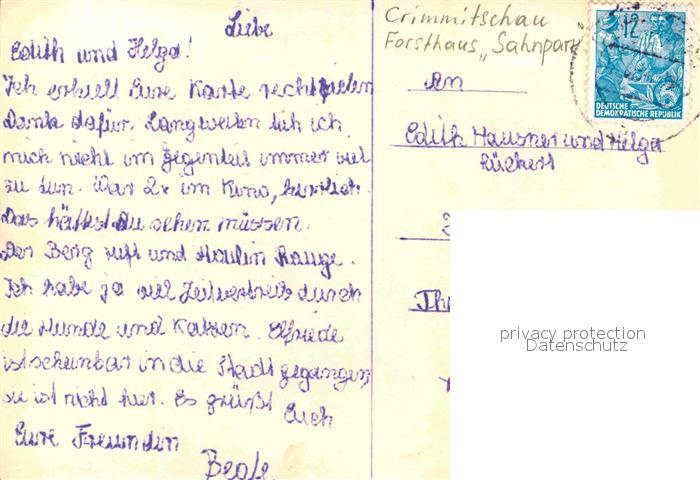 Liebe
Edith und Helga!
Ich erhielt Eure Karte recht vielen
Dank dafür. Langweilen tuh ich
mich nicht im gegenteil immer viel
zu tun. War 2x im Kino, herrlich.
Das hättest du sehen müssen.
Der Berg ruft und Maulin Rouge.
Ich habe ja viel Zeitvertreib durch
die Hunde und Katzen. Elfriede
ist scheinbar in die Stadt gegangen
sie ist nicht hier. Es grüßt Euch
Eure Freundin
Beate
Crimmitschau
Forsthaus „Sahnpark"
An
Edith Hausner und Helga
Lückert
Th
12
6
DEUTSCHE
DEMOKRATISCHE REPUBLIK
privacy protection
Datenschutz